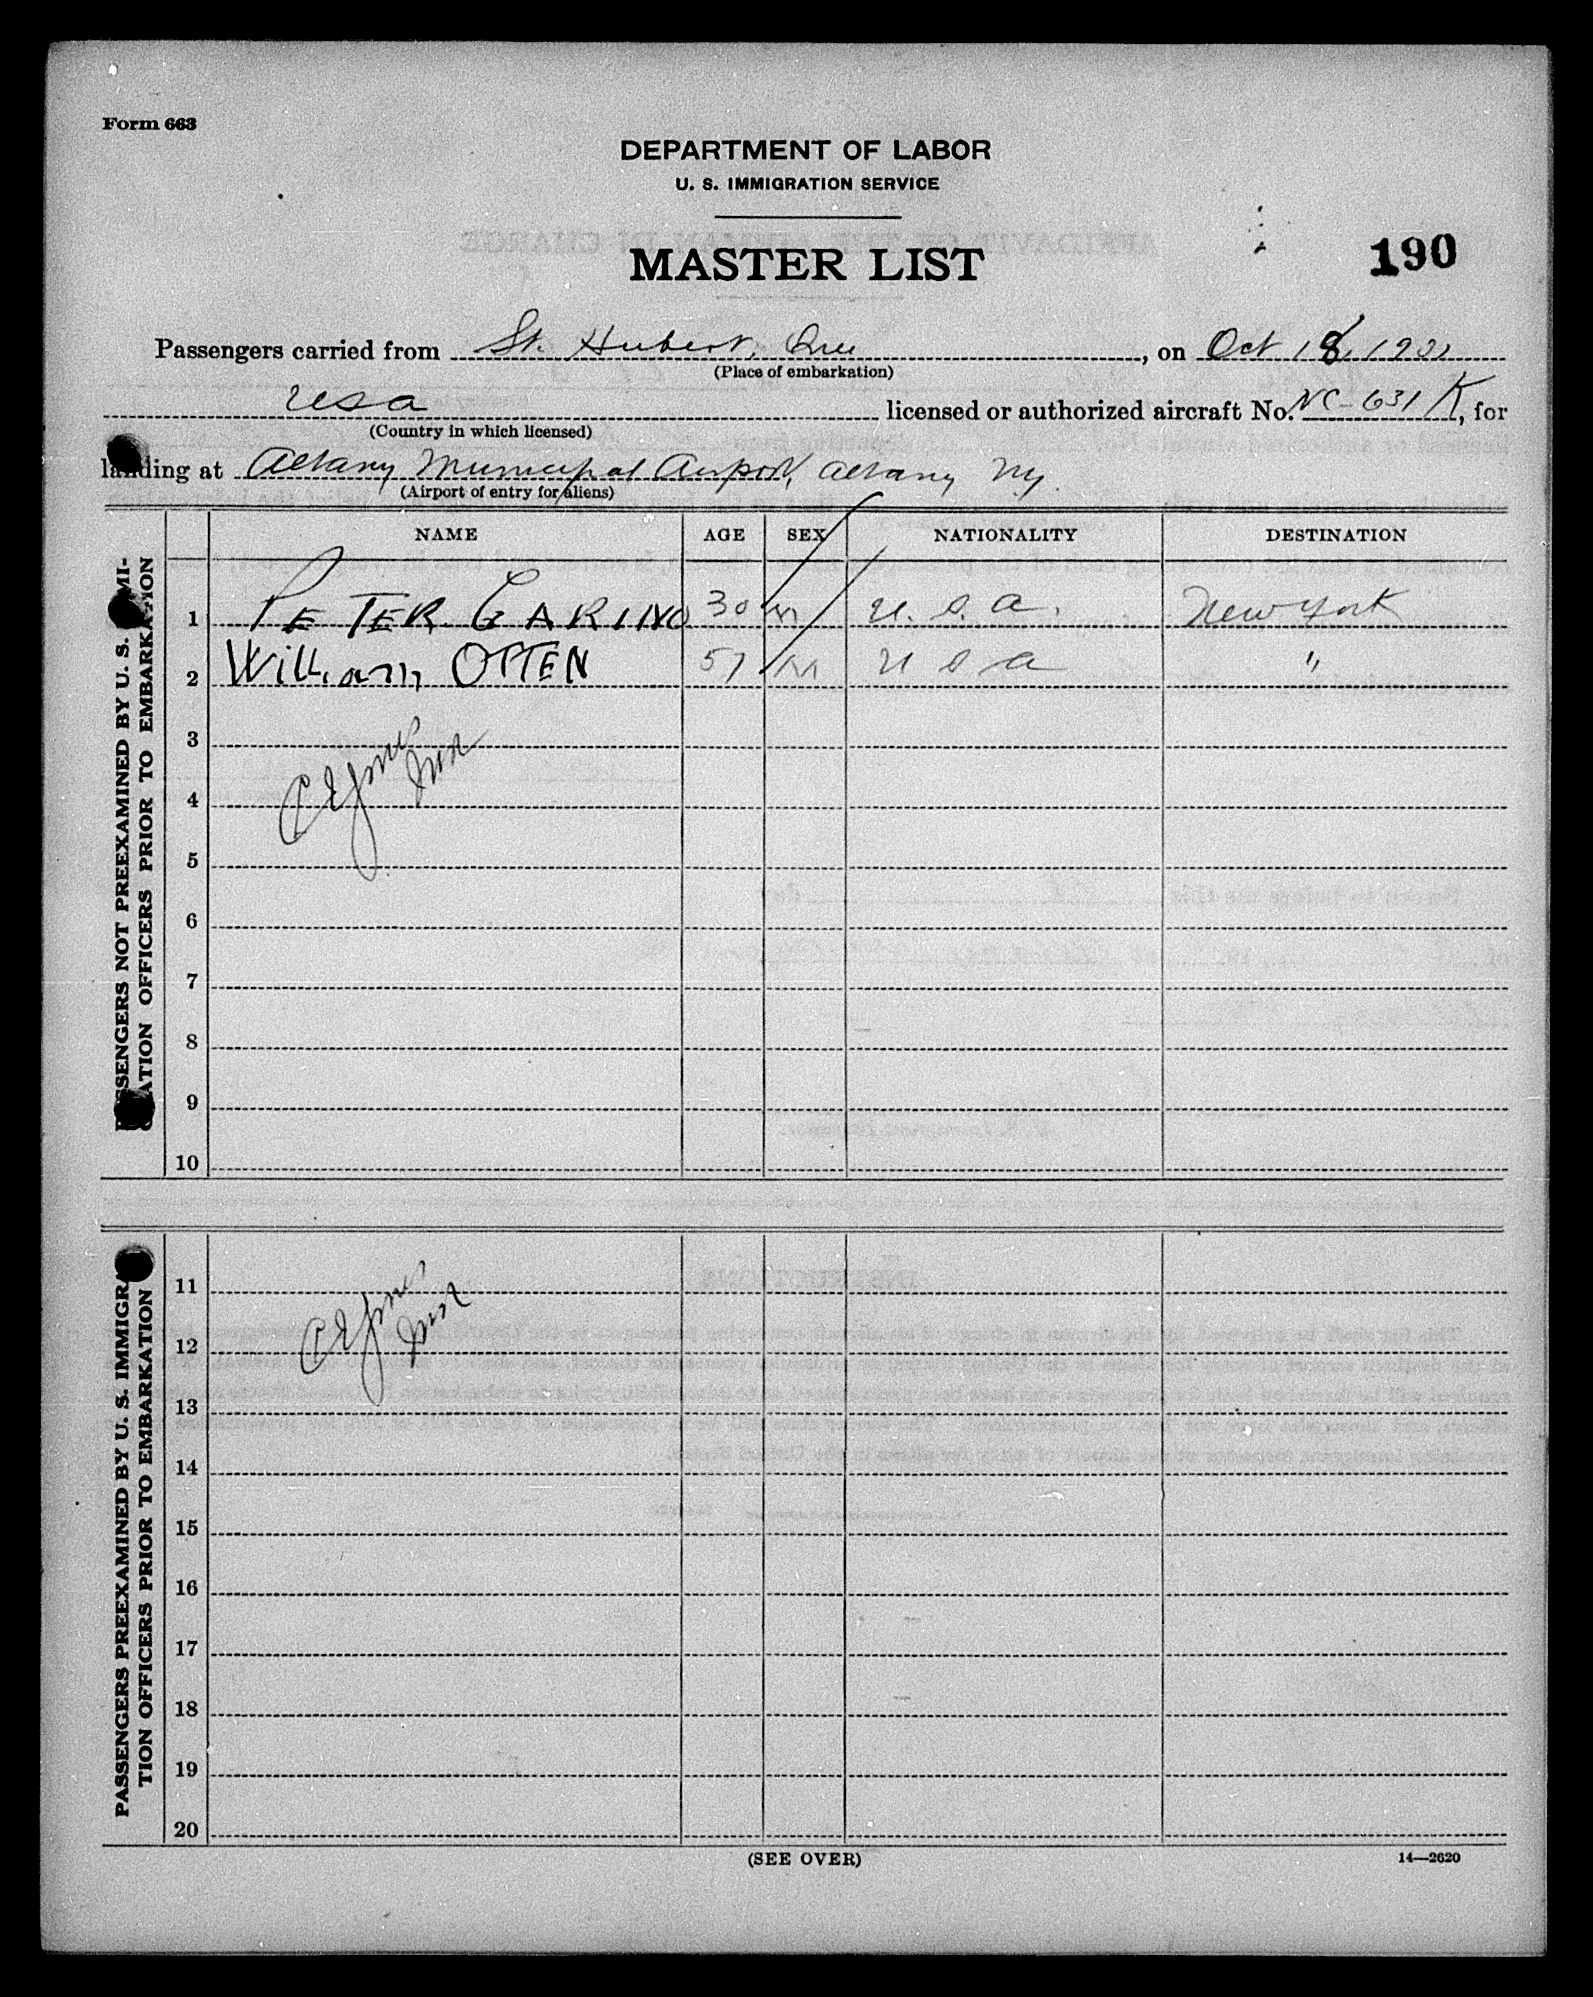 Form 663
DEPARTMENT OF LABOR
U. S. IMMIGRATION SERVICE
MASTER LIST
190
Passengers carried from St. Hubert, Que, on Oct 18, 193
(Place of embarkation)
usa licensed or authorized aircraft No. NC-631K, for
(Country in which licensed)
landing at Albany Municipal Airport, Albany Ny.
(Airport of entry for aliens)
NAME AGE SEX NATIONALITY DESTINATION
PASSENGERS NOT PREEXAMINED BY U. S. IMMI-
GRATION OFFICERS PRIOR TO EMBARKATION
1 PETER GARINO 30 M U. S. A. New York
2 William OTTEN 57 M U S A "
3
4
5
6
7
8
9
10
PASSENGERS PREEXAMINED BY U. S. IMMIGRA-
TION OFFICERS PRIOR TO EMBARKATION
11
12
13
14
15
16
17
18
19
20
(SEE OVER)
14—2620